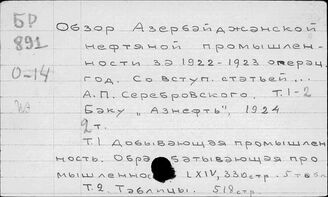 БР
891
О-14
Обзор Азербайджанской
нефтяной промышлен-
ности за 1922-1923 операц.
год. Со вступ. статьей...
А.П. Серебровского. Т.1-2
Баку „Азнефть", 1924
2 т.
Т.1 Добывающая промышлен
ность. Обра батывающая про
мышленнос LXIV, 330 стр. 5 табл.
Т.2. Таблицы. 518 стр.